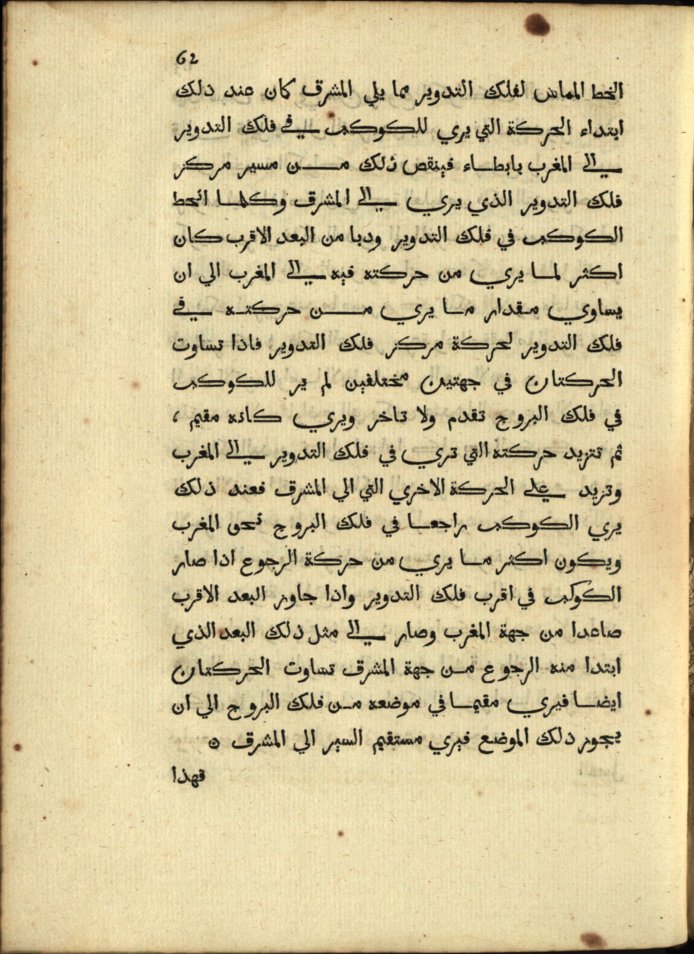 62
الخط المماس لفلك التدوير مما يلي المشرق كان عند دلك
ابتداء الحركة التي يري للكوكب في فلك التدوير
الي المغرب بابطاء فينقص ذلك من مسير مركز
فلك التدوير الذي يري الي المشرق وكلما انحط
الكوكب في فلك التدوير ودبا من البعد الاقرب كان
اكثر لما يري من حركته فيه الي المغرب الي ان
يساوي مقدار ما يري من حركته في
فلك التدوير لحركة مركز فلك التدوير فاذا تساوت
الحركتان في جهتين مختلفين لم ير للكوكب
في فلك البروج تقدم ولا تاخر ويري كانه مقيم ،
ثم تتزيد حركته التي تري في فلك التدوير الي المغرب
وتزيد علي الحركة الاخري التي الي المشرق فعند ذلك
يري الكوكب راجعا في فلك البروج نحو المغرب
ويكون اكثر ما يري من حركة الرجوع ادا صار
الكوكب في اقرب فلك التدوير وادا جاوز البعد الاقرب
صاعدا من جهة المغرب وصار الي مثل ذلك البعد الذي
ابتدا منه الرجوع من جهة المشرق تساوت الحركتان
ايضا فيري مقيما في موضعه من فلك البروج الي ان
يجوز دلك الموضع فيري مستقيم السير الي المشرق ۞
فهذا